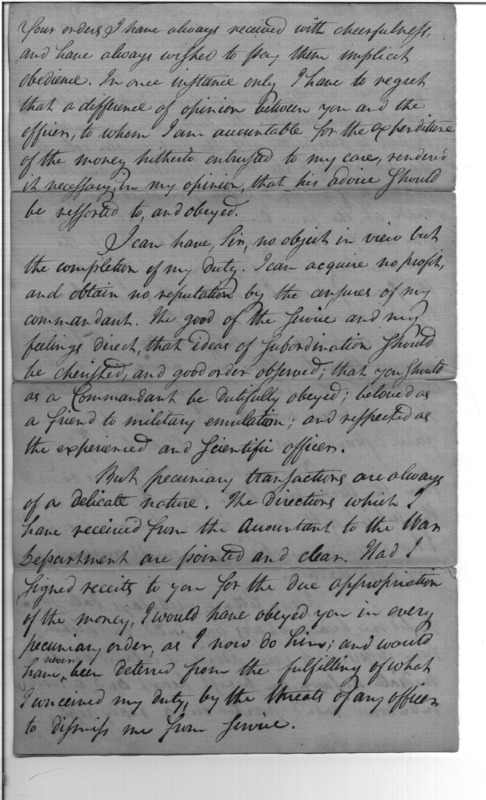 Your orders I have always received with cheerfulness,
and have always wished to pay them implicit
obedience. In once instance only I have to regret
that a difference of opinion between you and the
officer, to whom I am accountable for the expenditure
of the money hitherto entrusted to my care, render'd
it necessary, in my opinion, that his advice should
be ressorted to, and obeyed.
I can have, Sir, no object in view but
the completion of my duty. I can acquire no profit,
and obtain no reputation by the censures of my
commandant. The good of the service and my
feelings direct, that ideas of subordination should
be cherished, and good order observed; that you should
as a Commandant be dutifully obeyed; beloved as
a friend to military emulation; and respected as
the experienced and scientific officer.
But pecuniary transactions are always
of a delicate nature. The directions which I
have received from the Accountant to the War
Department are pointed and clear. Had I
signed receits to you for the due appropriation
of the money, I would have obeyed you in every
pecuniary order, as I now do him; and would
have never been deterred from the fulfilling of what
I conceived my duty, by the threats of any officer
to dismiss me from service.